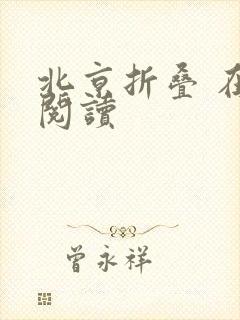 北京折叠 在
閱讀
曾永祥